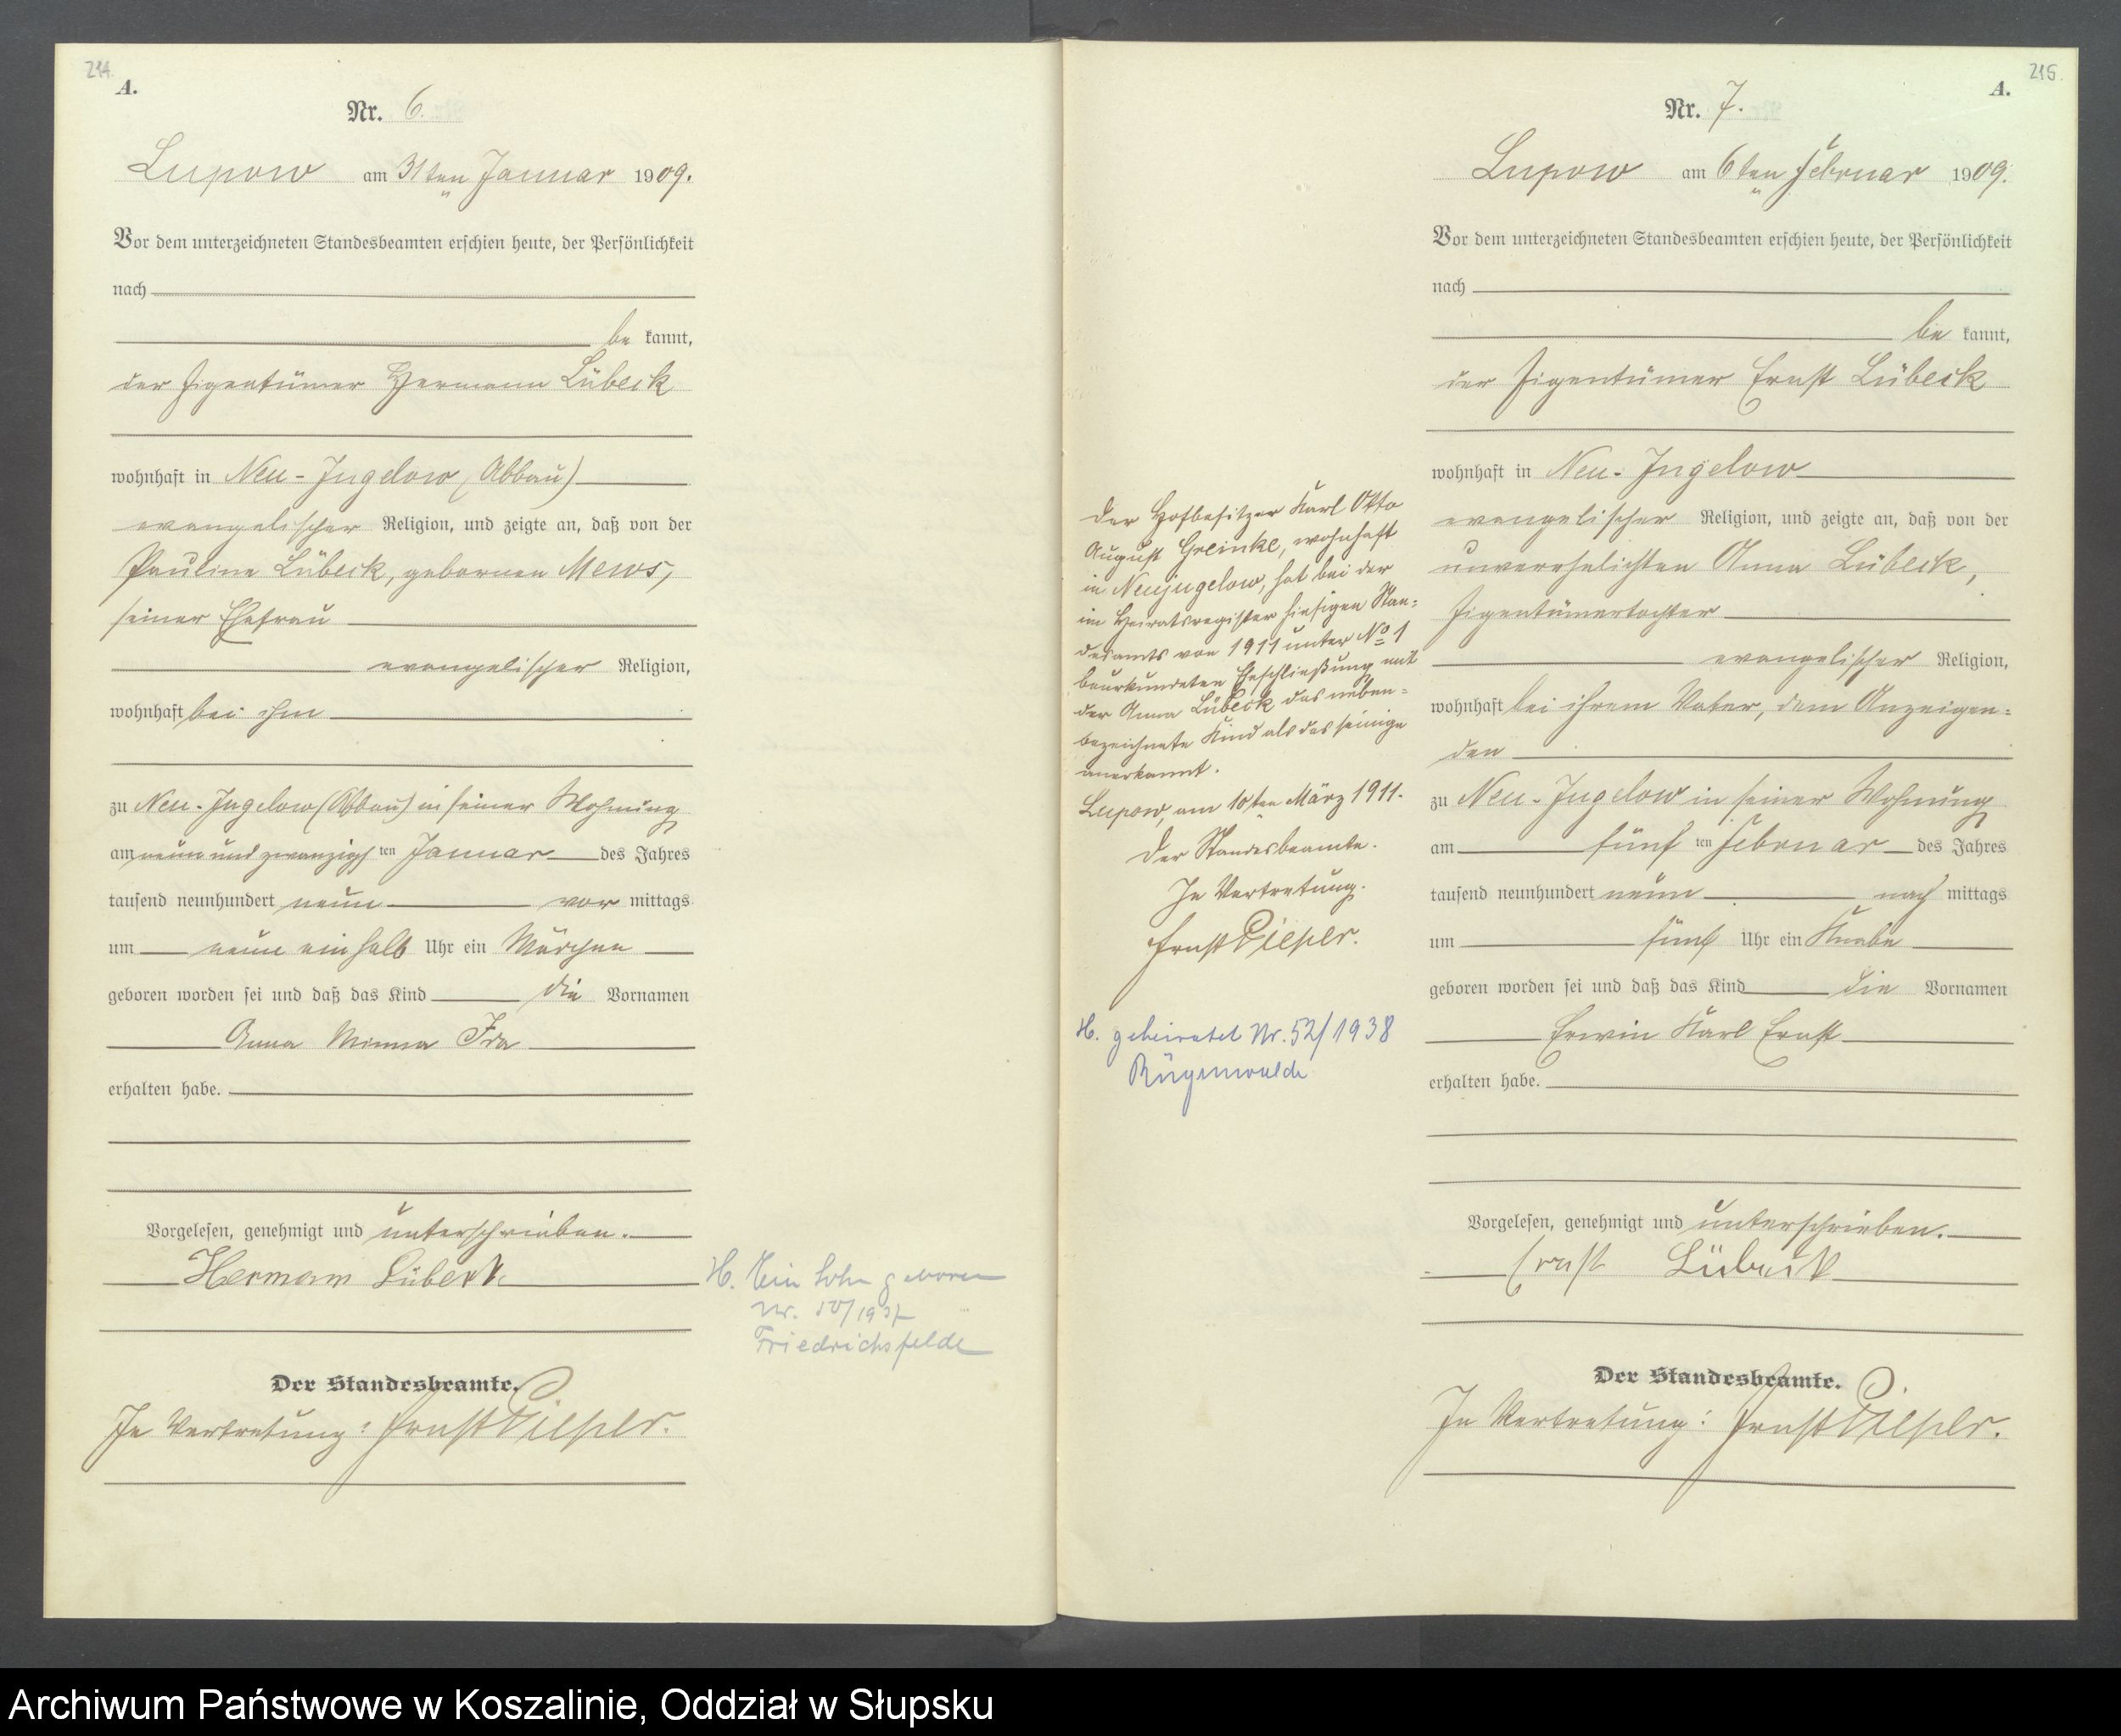 214.
A.
Nr. 6.
Lupow am 31ten Januar 1909.
Vor dem unterzeichneten Standesbeamten erschien heute, der Persönlichkeit
nach
be kannt,
der Eigentümer Hermann Lübeck
wohnhaft in Neu-Jugelow (Abbau)
evangelischer Religion, und zeigte an, daß von der
Pauline Lübeck, geborenen Mews,
seiner Ehefrau
evangelischer Religion,
wohnhaft bei ihm
zu Neu-Jugelow (Abbau) in seiner Wohnung
am neun und zwanzigsten Januar des Jahres
tausend neunhundert neun vor mittags
um neun einhalb Uhr ein Mädchen
geboren worden sei und daß das Kind die Vornamen
Anna Minna Ida
erhalten habe.
Vorgelesen, genehmigt und unterschrieben.
Hermann Lübeck
Der Standesbeamte.
In Vertretung: Ernst Pieper.
H. Ein Sohn geboren
Nr. /1937
Friedrichsfelde
215.
A.
Nr. 7.
Lupow am 6ten Februar 1909.
Vor dem unterzeichneten Standesbeamten erschien heute, der Persönlichkeit
nach
be kannt,
der Eigentümer Ernst Lübeck
wohnhaft in Neu-Jugelow
evangelischer Religion, und zeigte an, daß von der
unverehelichten Anna Lübeck,
Eigentümertochter
evangelischer Religion,
wohnhaft bei ihrem Vater, dem Anzeigen=
den
zu Neu-Jugelow in seiner Wohnung
am fünf ten Februar des Jahres
tausend neunhundert neun nach mittags
um fünf Uhr ein Knabe
geboren worden sei und daß das Kind die Vornamen
Erwin Karl Ernst
erhalten habe.
Vorgelesen, genehmigt und unterschrieben.
Ernst Lübeck
Der Standesbeamte.
In Vertretung: Ernst Pieper.
Der Hofbesitzer Karl Otto
August Greinke, wohnhaft
in Neujugelow, hat bei der
im Heiratsregister hiesigen Stan=
desamts von 1911 unter No 1
beurkundeten Eheschließung mit
der Anna Lübeck das neben=
bezeichnete Kind als das seinige
anerkannt.
Lupow, am 10ten März 1911.
Der Standesbeamte.
In Vertretung.
Ernst Pieper.
H. geheiratet Nr. 52/1938
Rügenwalde
Archiwum Państwowe w Koszalinie, Oddział w Słupsku